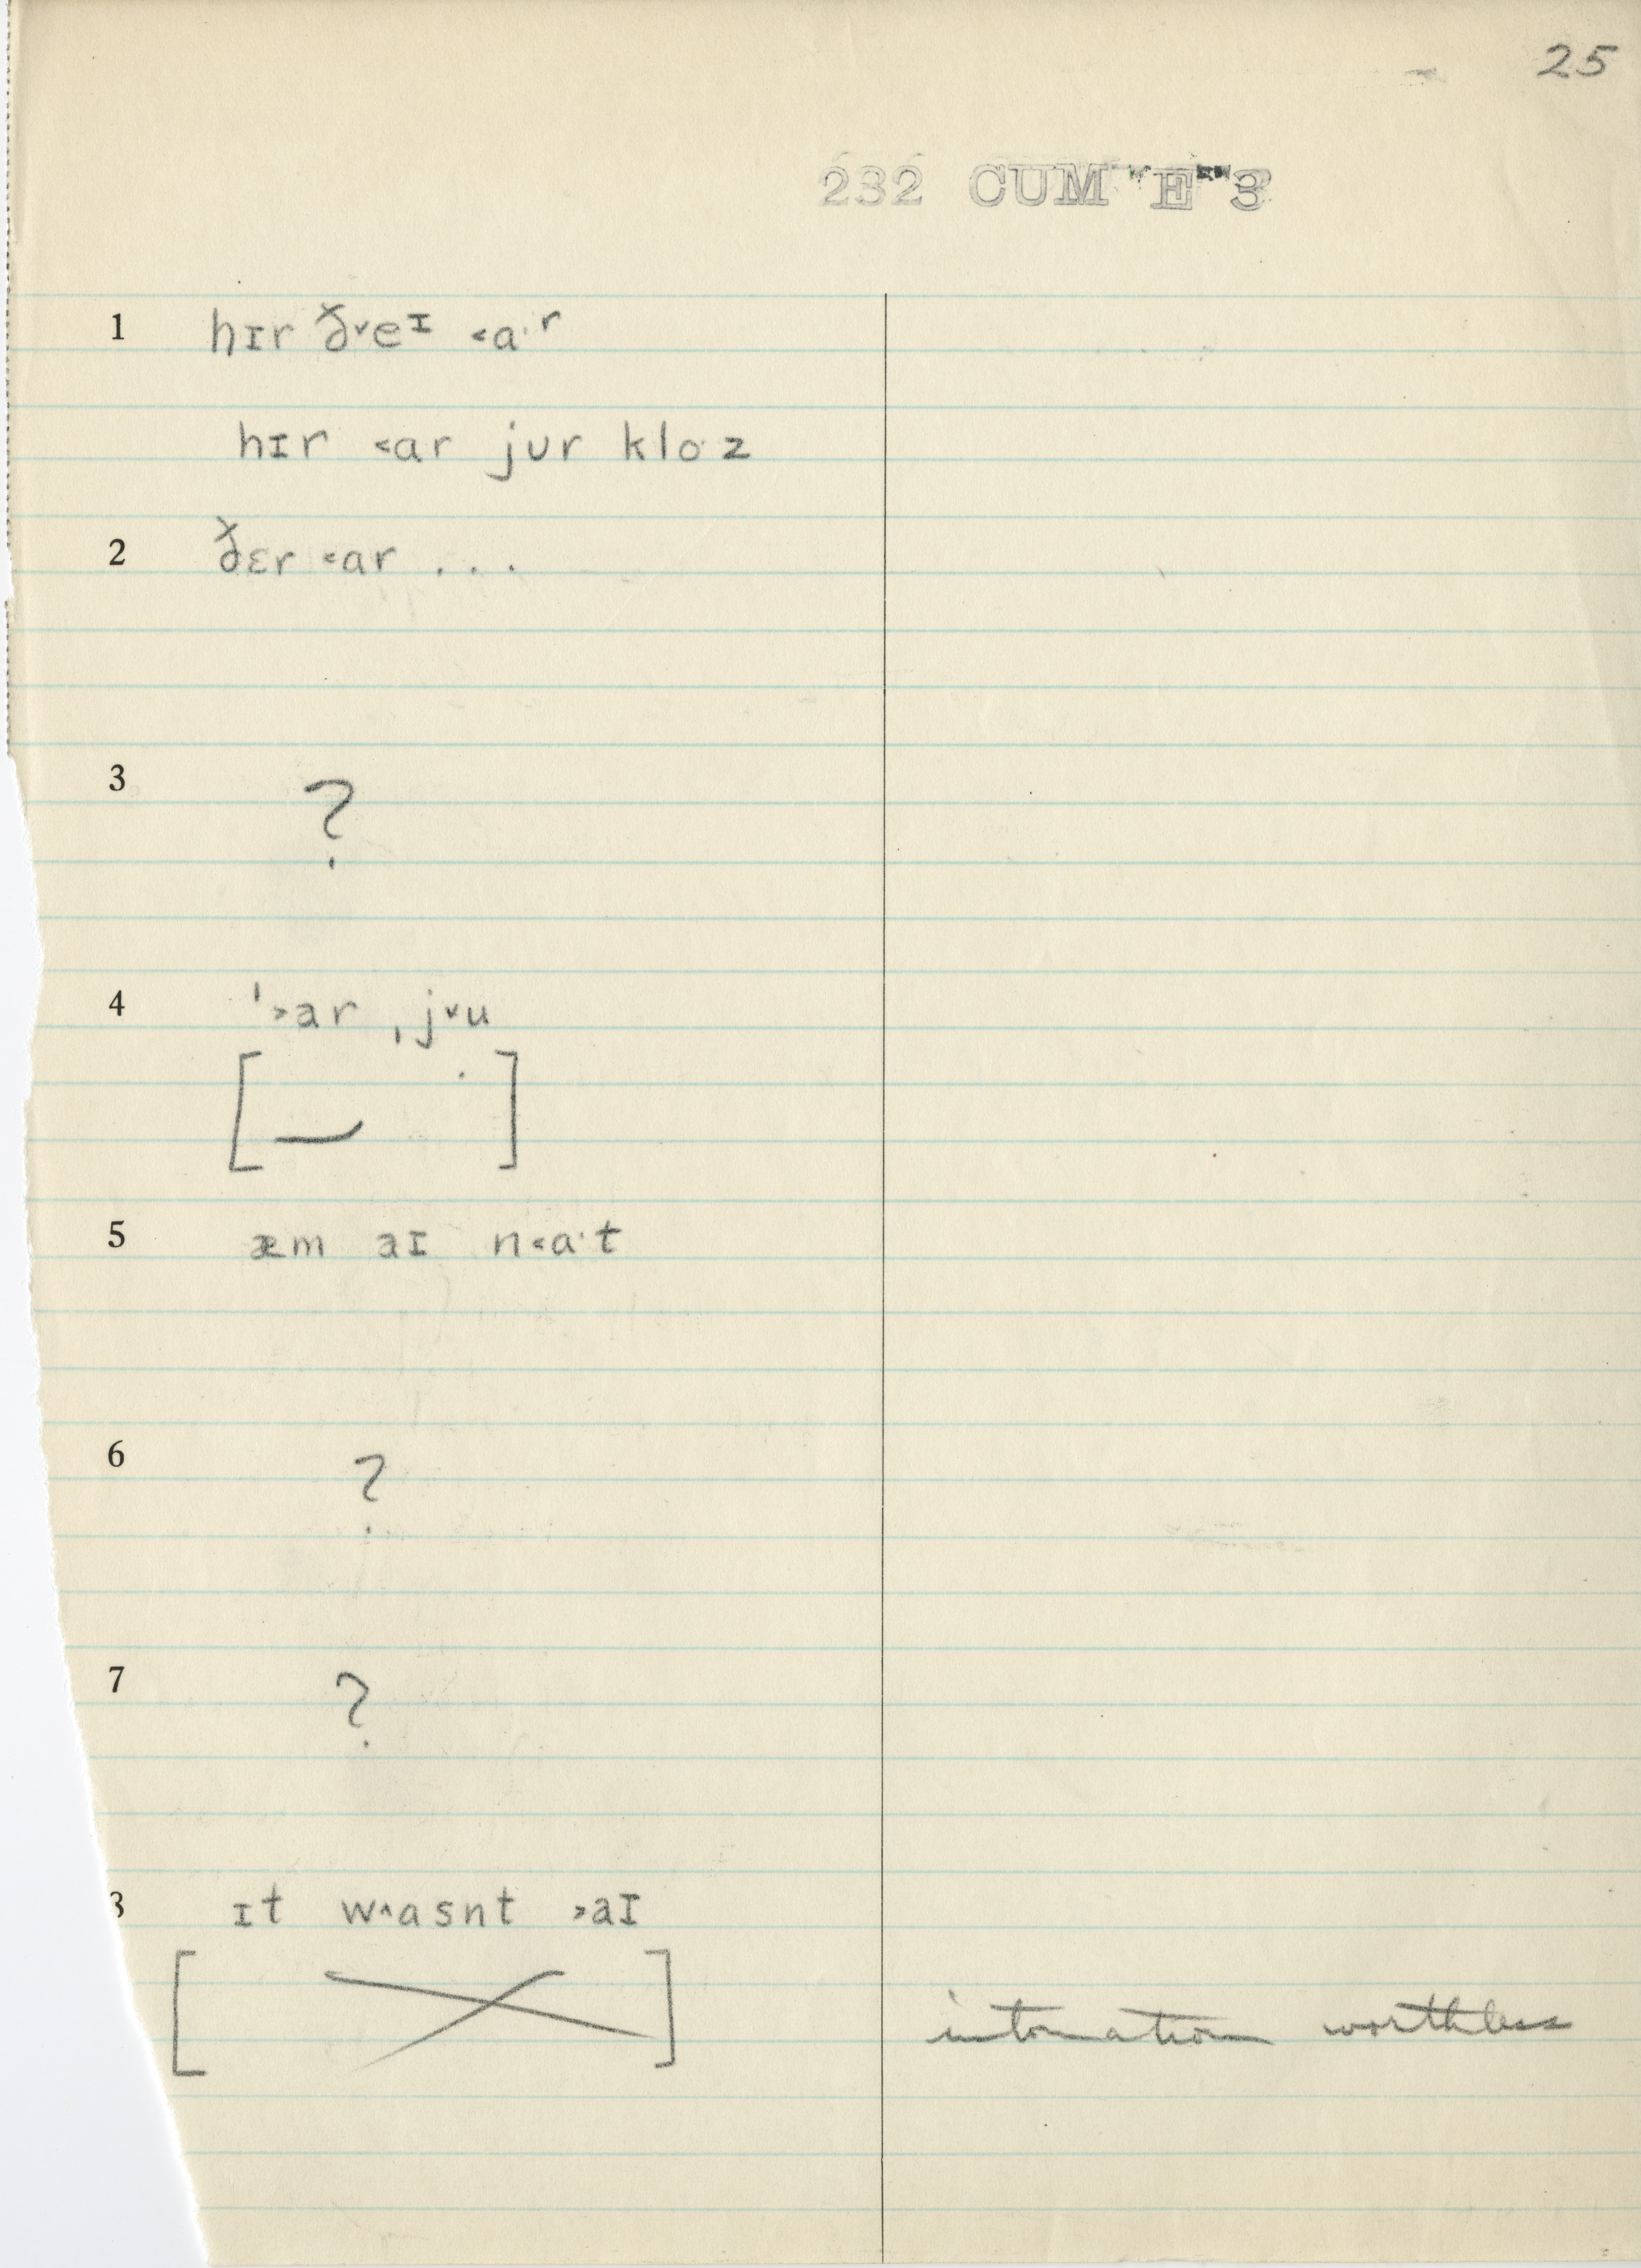 25
232 CUM "E" 3
1 hɪr ð˅eᶦ ˂ɑ·ʳ
hɪr ˂ɑr jʊr klo·z
2 ðɛr ˂ɑr . . .
3 ?
4 ˈ˃ar ˌj˅u
[ ]
5 æm aɪ n˂ɑ·t
6 ?
7 ?
8 ɪt w˄ɑsnt ˃aɪ
[ ] intonation worthless